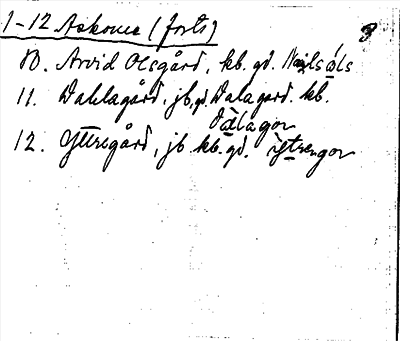 1-12 Askome (forts)
10. Arvid Olsgård, kb. gd.
11. Dahlagård, jb, gd. Dalagard. kb.
Dalagor
12. Yttregård, jb. kb. gd. ytrengor